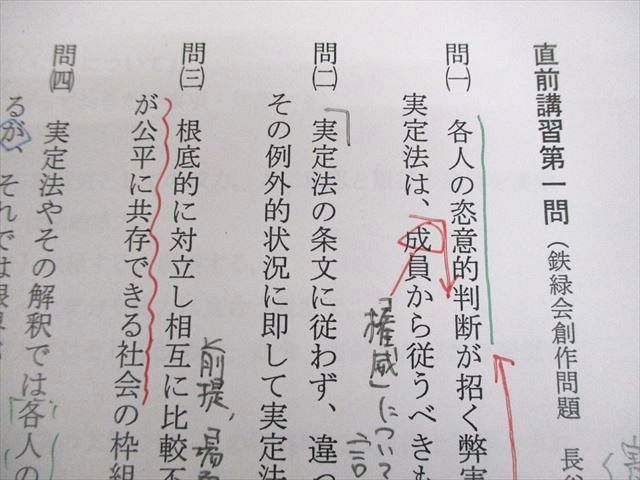 直前講習第一問（鉄緑会創作問題　長谷
問㈠　各人の恣意的判断が招く弊害
実定法は、成員から従うべきも
「権威」について
問㈡　実定法の条文に従わず、違っ
その例外的状況に即して実定法
前提，場
問㈢　根底的に対立し相互に比較不
が公平に共存できる社会の枠組
問㈣　実定法やその解釈では各人の
るが、それでは限界